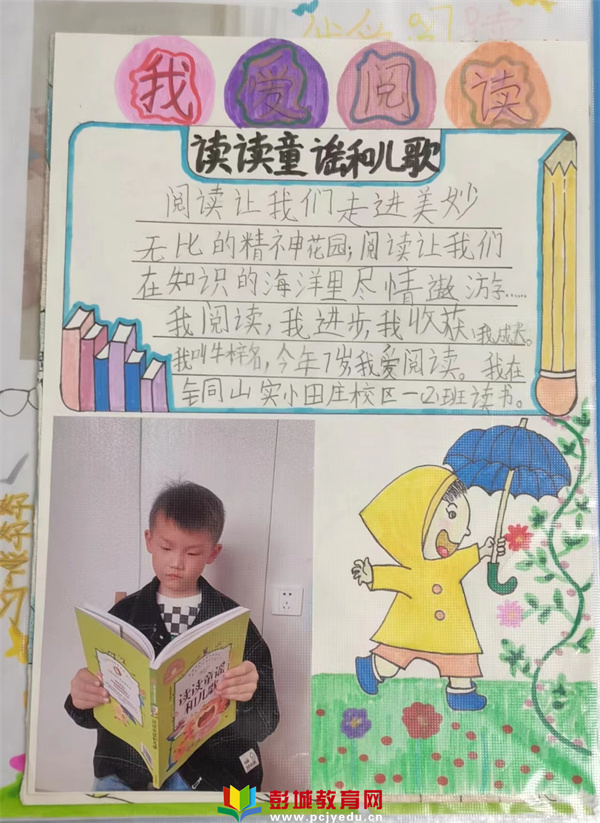 我爱阅读
读读童谣和儿歌
阅读让我们走进美妙
无比的精神花园;阅读让我们
在知识的海洋里尽情遨游……
我阅读,我进步,我收获,我成长。
我叫牛梓名,今年7岁我爱阅读。我在
铜山实小田庄校区一(2)班读书。
好好学习
读读童谣
和儿歌
彭城教育网
www.pcjyedu.cn